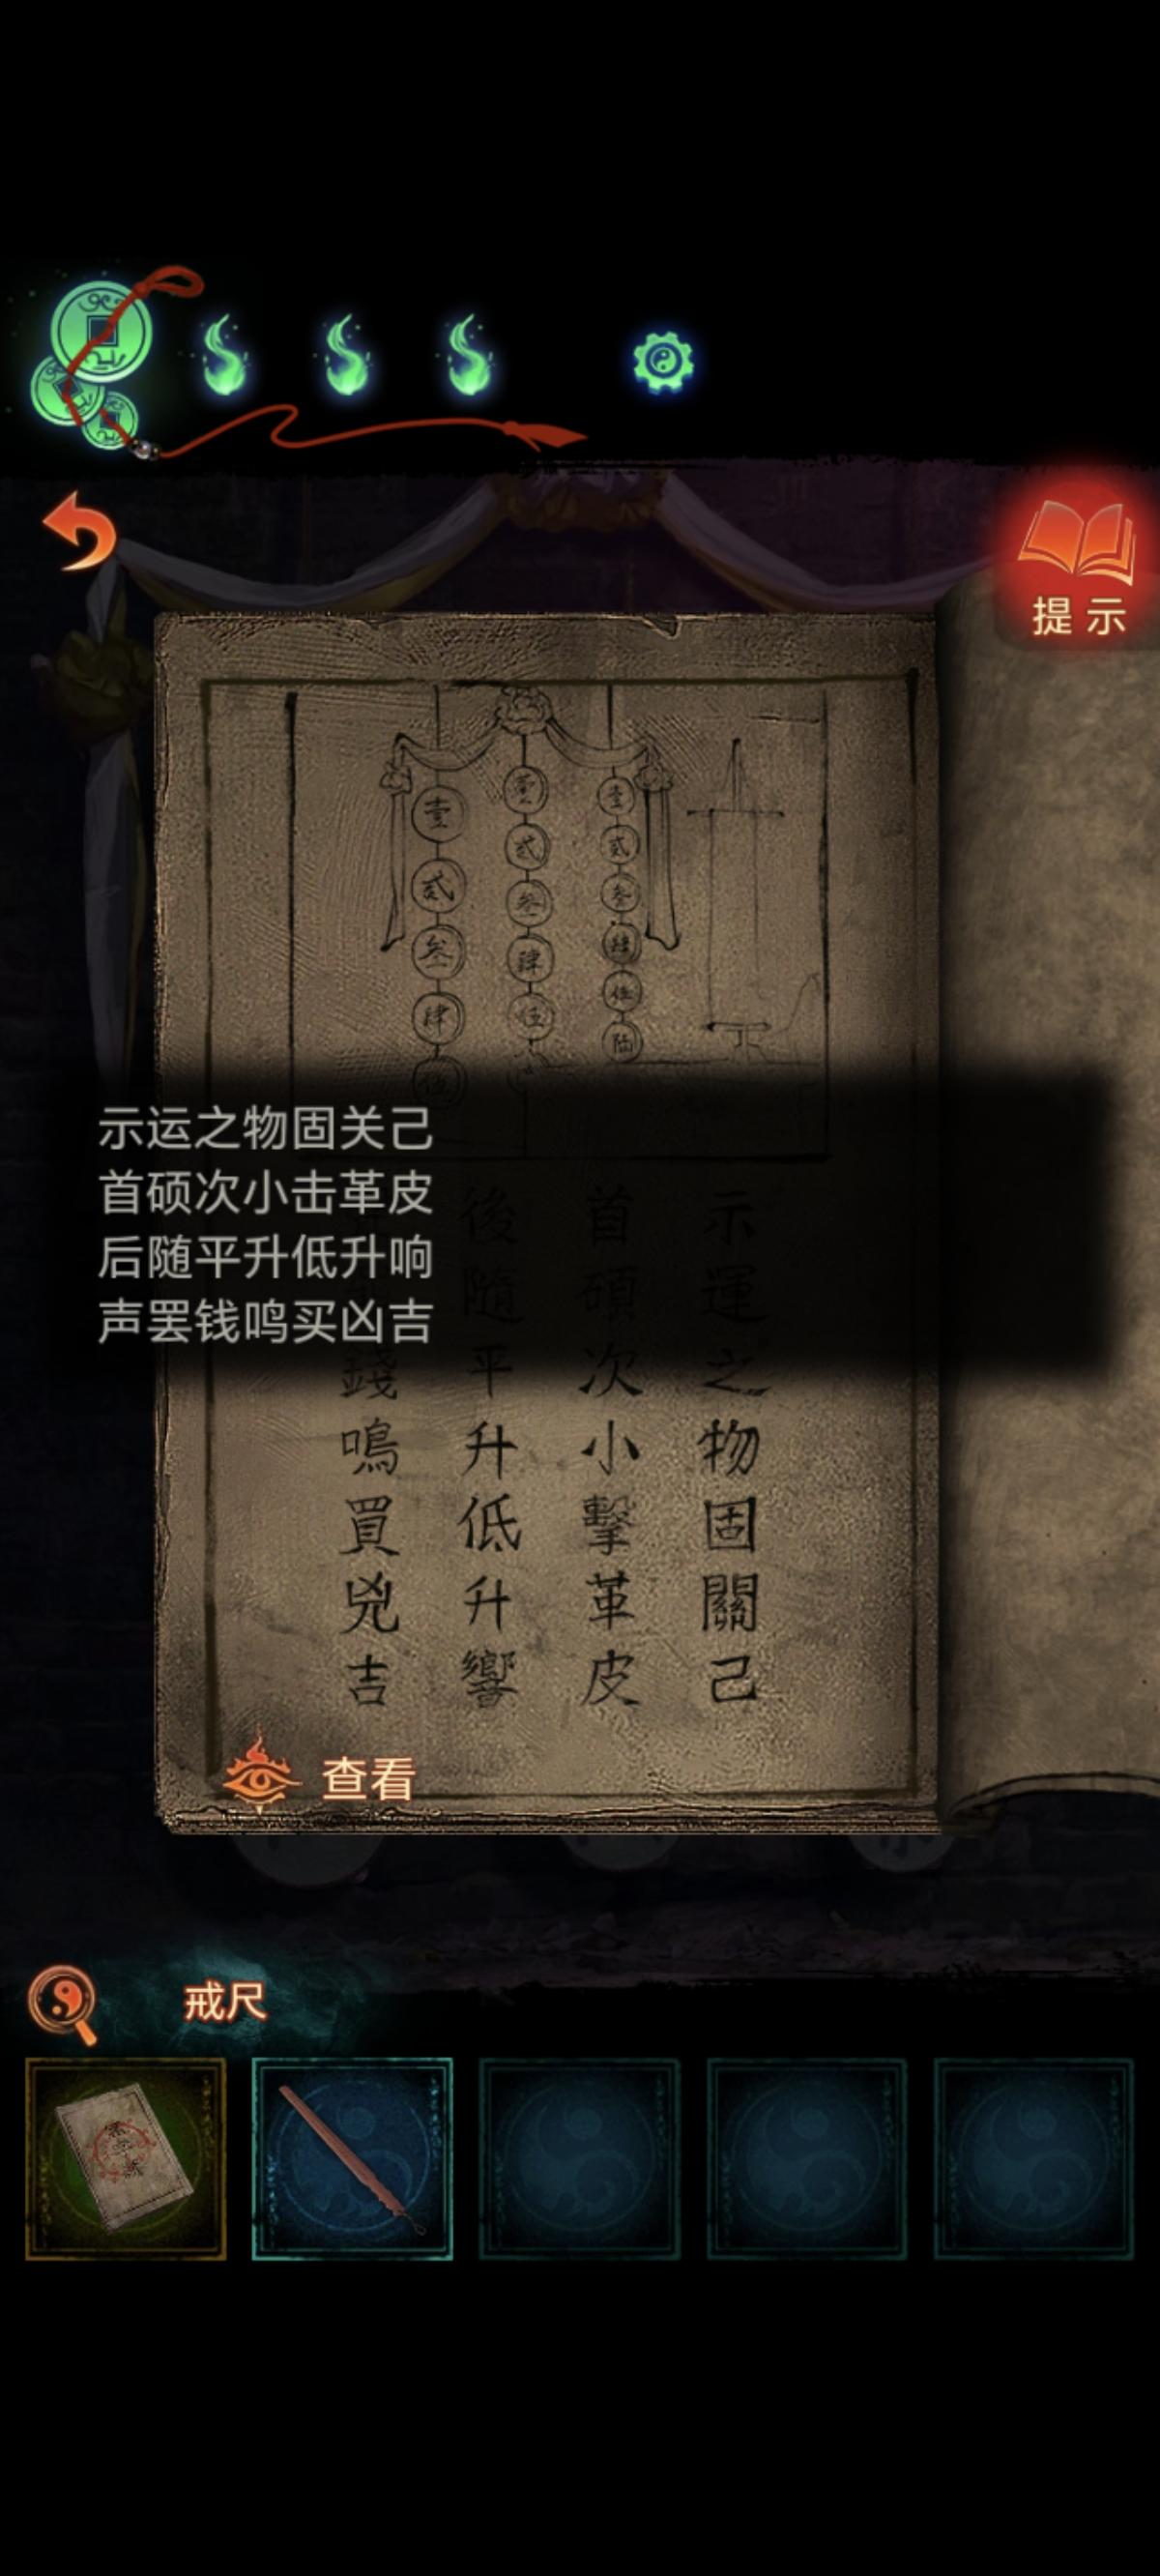 提示
壹
贰
叁
肆
伍
壹
贰
叁
肆
伍
壹
贰
叁
肆
伍
陆
示运之物固关己
首硕次小击革皮
后随平升低升响
声罢钱鸣买凶吉
示運之物固關己
首碩次小擊革皮
後隨平升低升響
錢鳴買兇吉
查看
戒尺